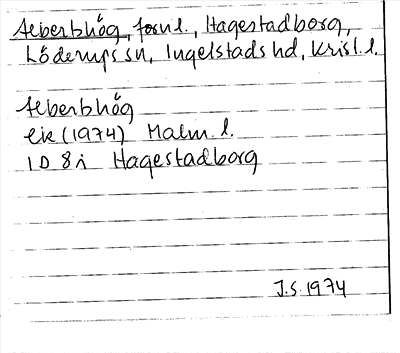 Albertshög, fornl., Hagestadborg,
Löderups sn, Ingelstads hd, Krist. l.
Albertshög
ek (1974) Malm. l.
1D 8i Hagestadborg
J.S. 1974